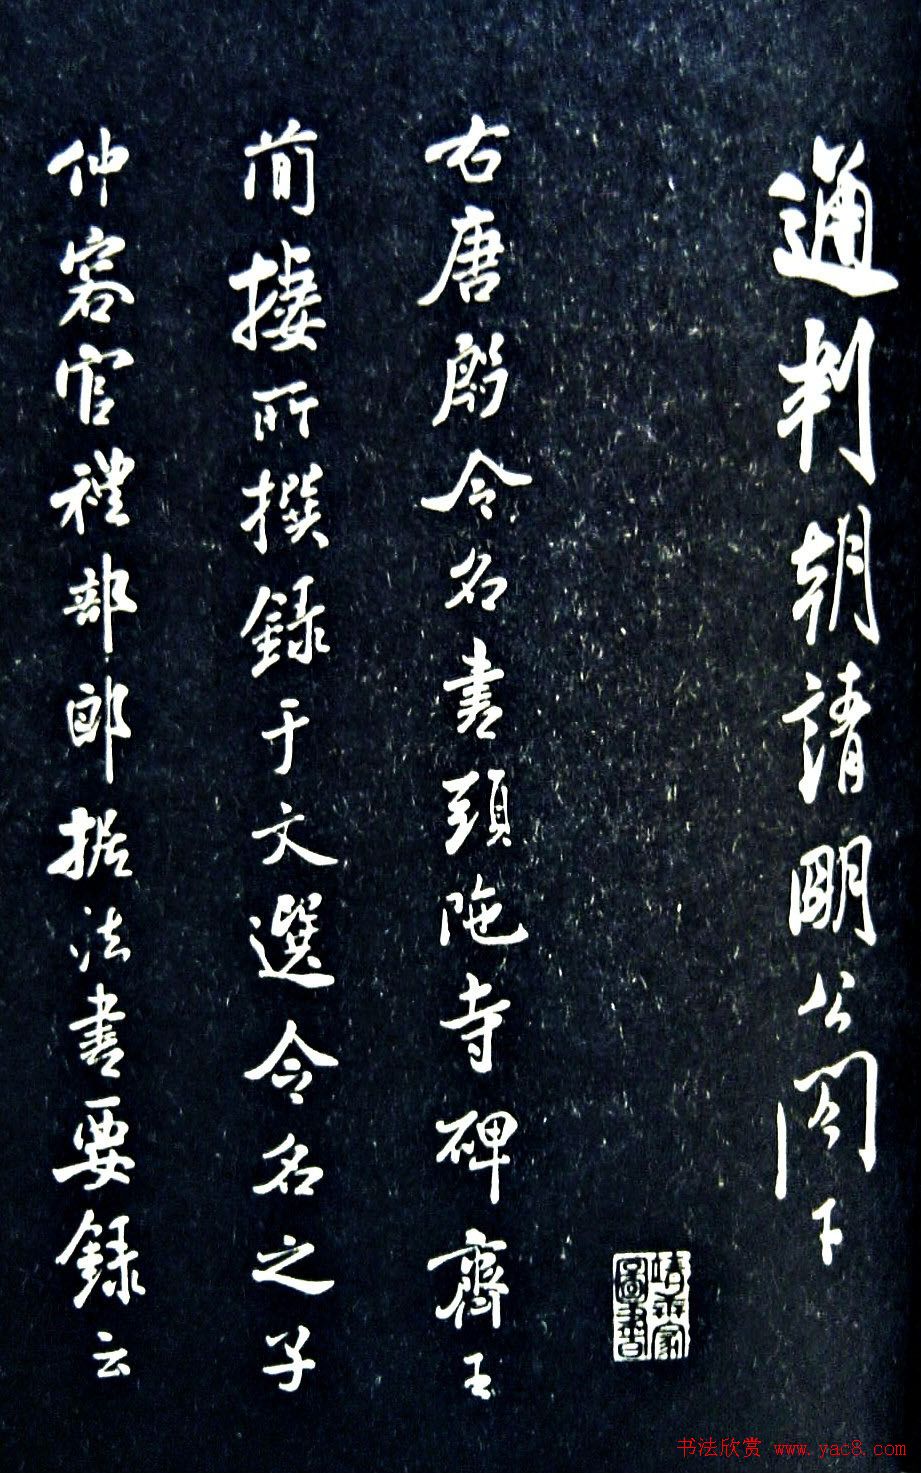 通判朝請明公閤下
右唐殷令名書頭陁寺碑齊王
簡捿所撰録于文選令名之子
仲容官禮部郎据法書要録云
书法欣赏 www.yac8.com